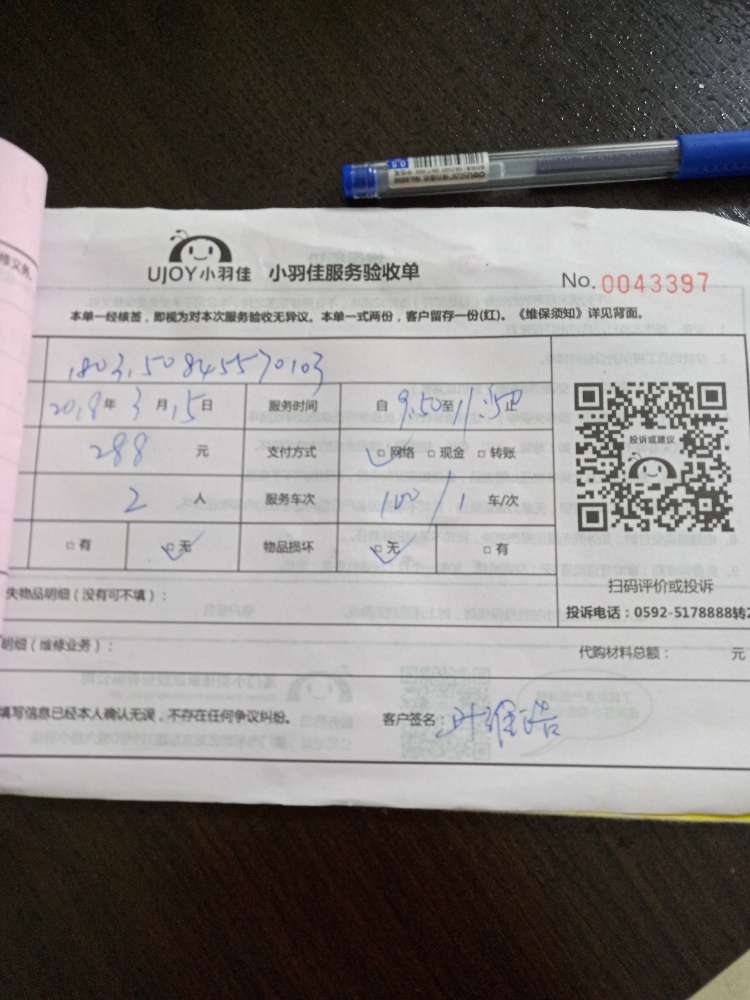 修义务。
UJOY小羽佳 小羽佳服务验收单 No. 0043397
本单一经核签，即视为对本次服务验收无异议。本单一式两份，客户留存一份(红)。《维保须知》详见背面。
1803150845570103
2018年 3月15日 服务时间 自 9:50至11:50止
288 元 支付方式 网络 现金 转账
2 人 服务车次 100/1 车/次
有 无 物品损坏 无 有
投诉或建议
扫码评价或投诉
失物品明细（没有可不填）：
投诉电话：0592-5178888转2
明细（维修业务）： 代购材料总额： 元
填写信息已经本人确认无误，不存在任何争议纠纷。 客户签名：